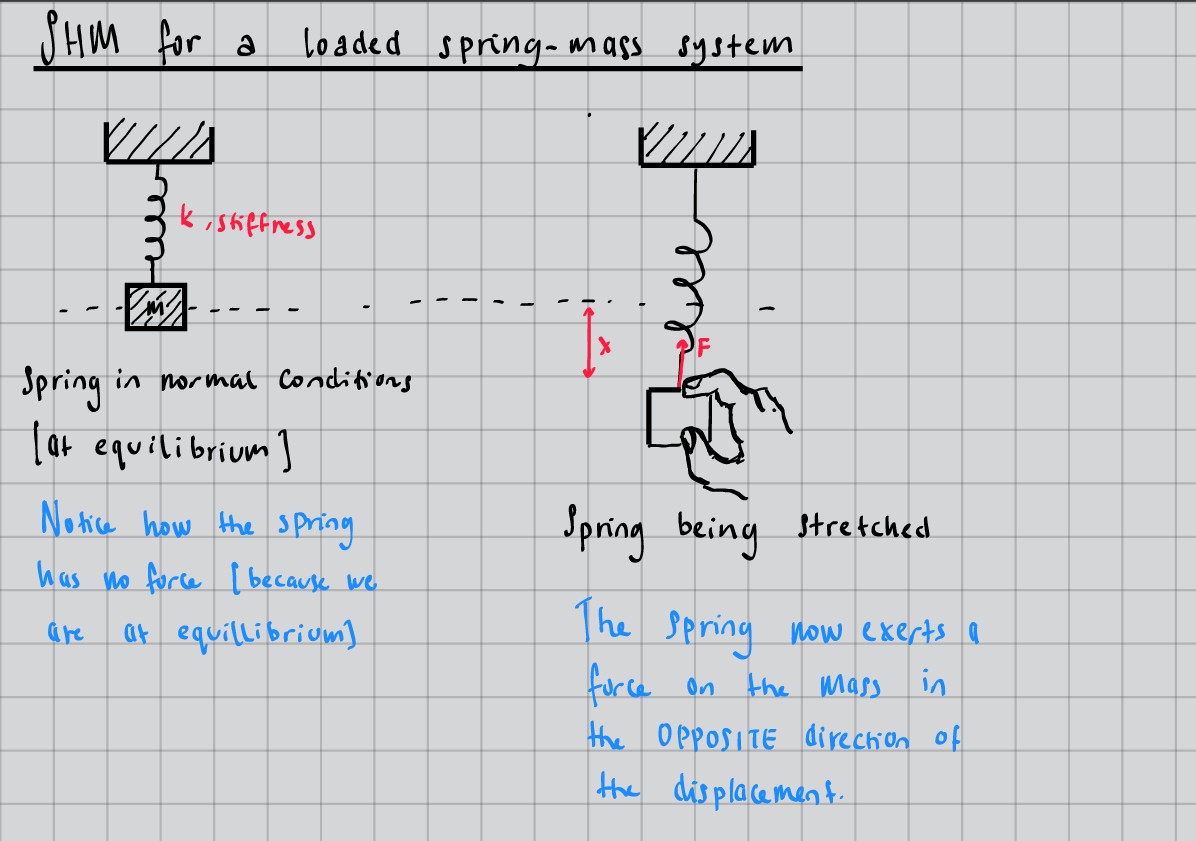 SHM for a loaded spring-mass system
k, stiffness
m
x
F
Spring in normal conditions
[at equilibrium]
Spring being stretched
Notice how the spring
has no force [because we
are at equillibrium]
The spring now exerts a
force on the mass in
the OPPOSITE direction of
the displacement.